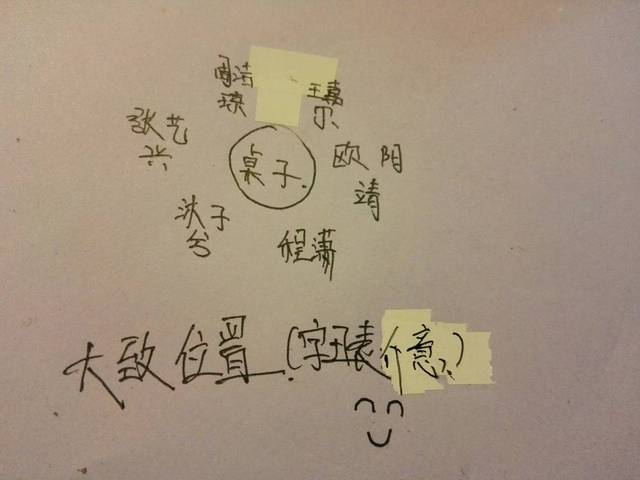 周洁
琼
王嘉
尔
张艺
兴
桌子.
欧阳
靖
子
兮
程潇
大致位置.(字丑表介意?)